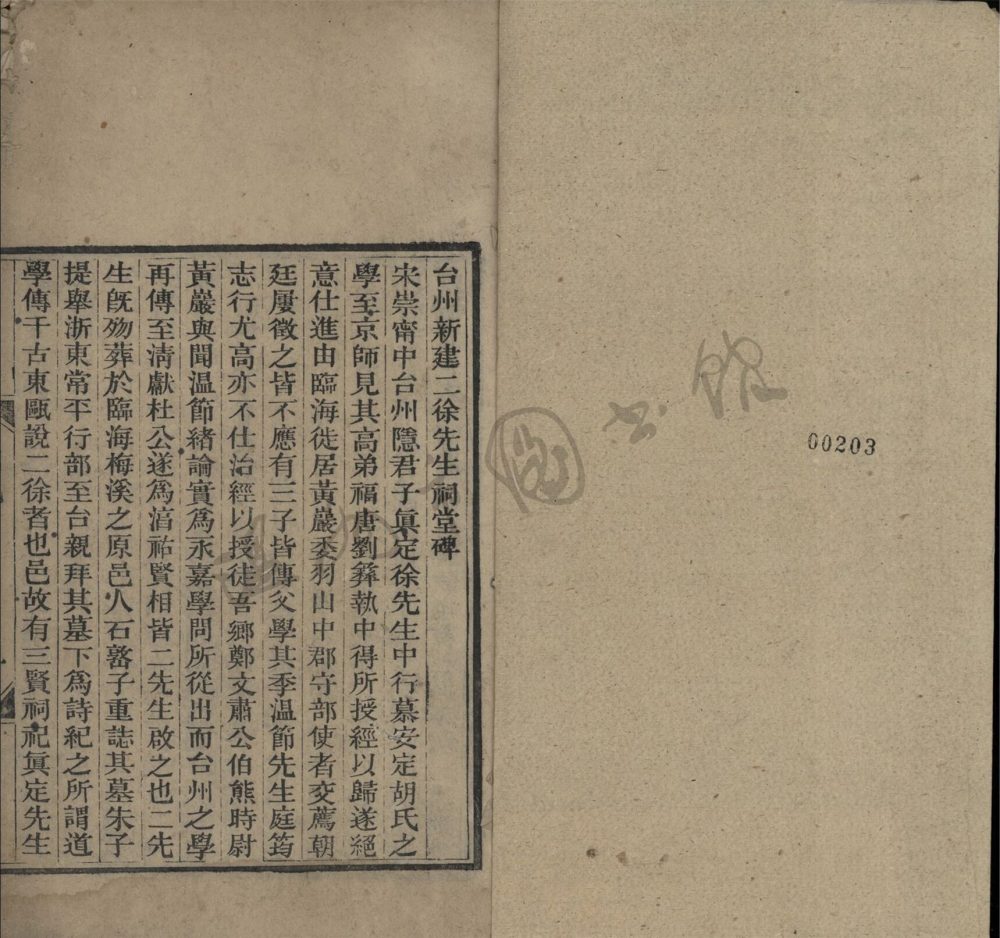 台州新建二徐先生祠堂碑
宋崇甯中台州隱君子眞定徐先生中行慕安定胡氏之
學至京師見其高弟福唐劉彝執中得所授經以歸遂絕
意仕進由臨海徙居黃巖委羽山中郡守部使者交薦朝
廷屢徵之皆不應有三子皆傳父學其季溫節先生庭筠
志行尤高亦不仕治經以授徒吾鄉鄭文肅公伯熊時尉
黃巖與聞温節緒論實爲永嘉學問所從出而台州之學
再傳至清獻杜公遂爲湻祐賢相皆二先生啟之也二先
生旣歾葬於臨海梅溪之原邑人石𡼖子重誌其墓朱子
提舉浙東常平行部至台親拜其墓下爲詩紀之所謂道
學傳千古東甌說二徐者也邑故有三賢祠祀眞定先生
書
00203